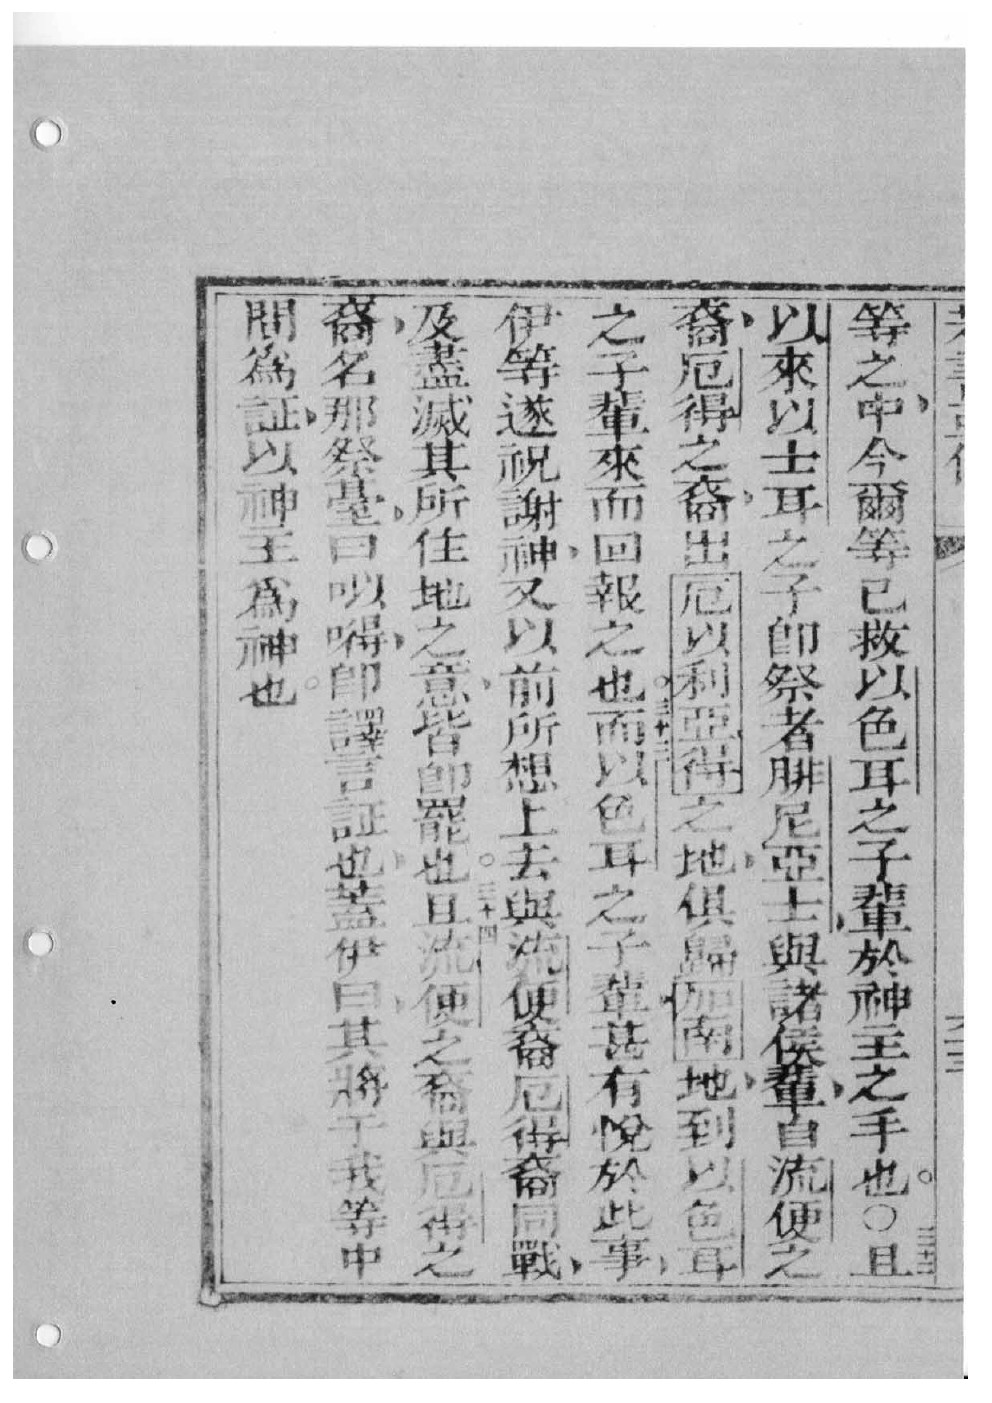 等之中今爾等已救以色耳之子輩於神主之手也○三十二且
以來以士耳之子卽祭者腓尼亞士與諸侯輩自流便之
裔厄得之裔出厄以利亞得之地俱歸加南地到以色耳
之子輩來而回報之也。三十三而以色耳之子輩甚有悅於此事
伊等遂祝謝神又以前所想上去與流便裔厄得裔同戰
及盡滅其所住地之意皆卽罷也。三十四且流便之裔與厄得之
裔名那祭臺曰㕥嘚卽譯言証也蓋伊曰其將于我等中
間為証以神主為神也。